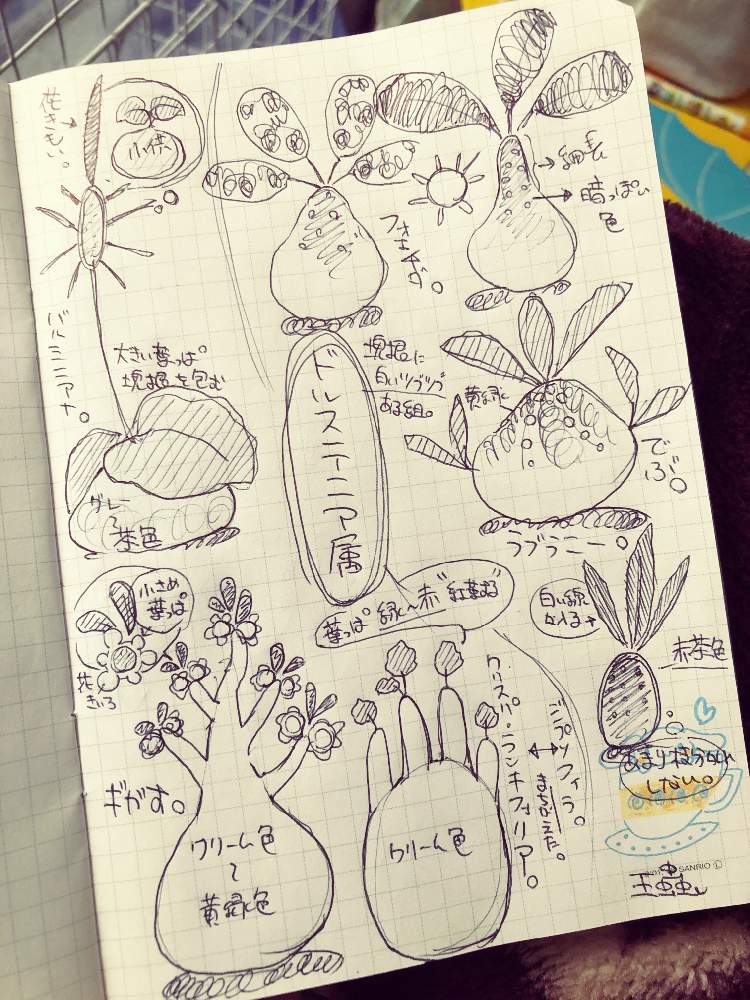 花きもい。
小株
バルミニアナ。
大きい葉っぱ
塊根を包む
グレー
〜
茶色
フォエチダ。
細長
暗っぽい
色
ドルステニア属
塊根に
白いツブツブ
ある組。
黄緑
でぶ。
ラブラニー。
小さめ
葉っぱ
花
きいろ
葉っぱ 緑〜赤"紅葉する
ギガス。
クリーム色
〜
黄緑色
クリーム色
クリスパ・ランキフォリア。
まちがえた。
ジプソフィラ。
白い線
が入る
赤茶色
あまり枝分かれ
しない。
SANRIO
王蟲